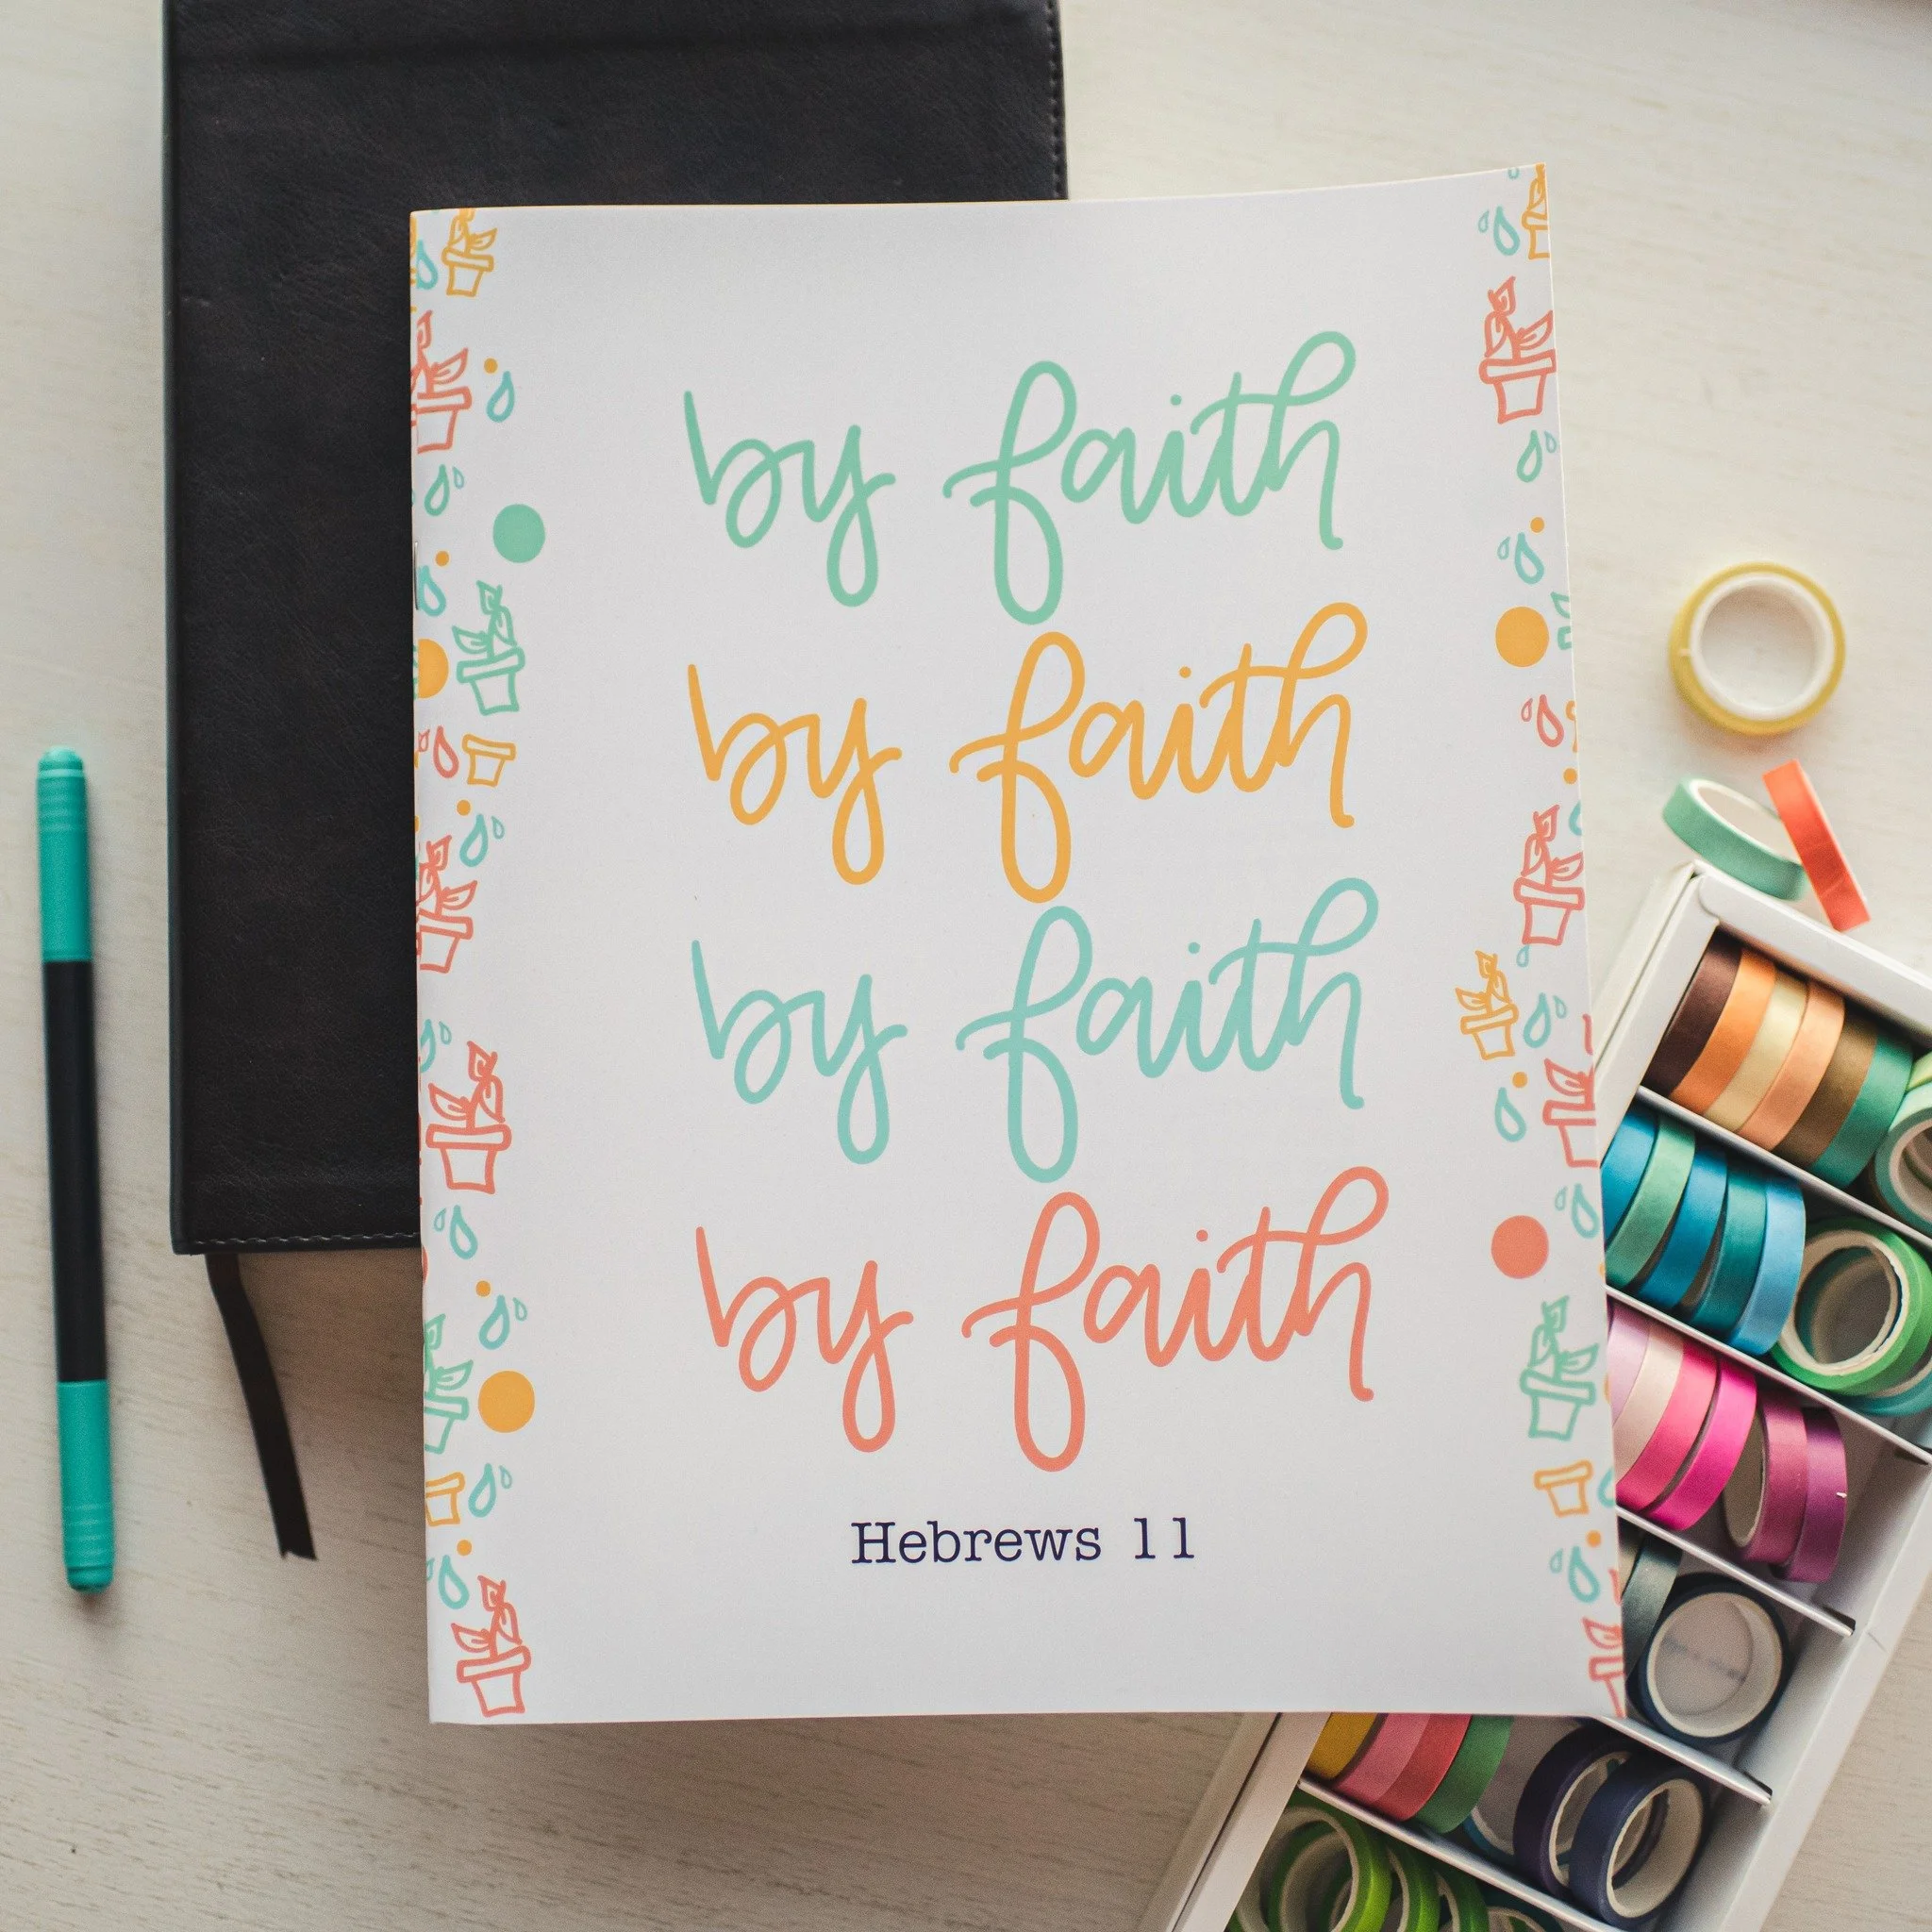 by faith
by faith
by faith
by faith
Hebrews 11